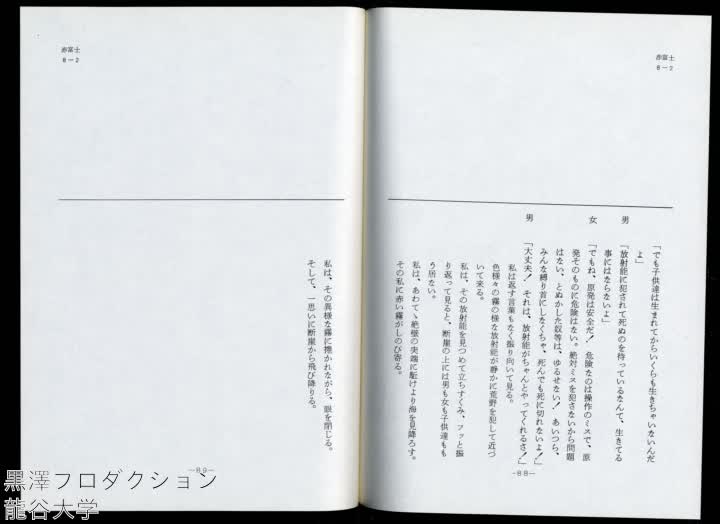 赤富士
8―2
「でも子供達は生まれてからいくらも生きちゃいないんだ
よ」
男
「放射能に犯されて死ぬのを待っているなんて、生きてる
事にはならないよ」
女
「でもね、原発は安全だ！ 危険なのは操作のミスで、原
発そのものに危険はない。絶対ミスを犯さないから問題
はない、とぬかした奴等は、ゆるせない！ あいつら、
みんな縛り首にしなくちゃ、死んでも死に切れないよ！」
男
「大丈夫！ それは、放射能がちゃんとやってくれるさ！」
私は返す言葉もなく振り向いて見る。
色様々の霧の様な放射能が静かに荒野を犯して近づ
いて来る。
私は、その放射能を見つめて立ちすくみ、フッと振
り返って見ると、断崖の上には男も女も子供達もも
う居ない。
私は、あわてゝ絶壁の突端に駈けより海を見降ろす。
その私に赤い霧がしのび寄る。
―88―
赤富士
8―2
私は、その異様な霧に捲かれながら、眼を閉じる。
そして、一思いに断崖から飛び降りる。
―89―
黒澤プロダクション
龍谷大学